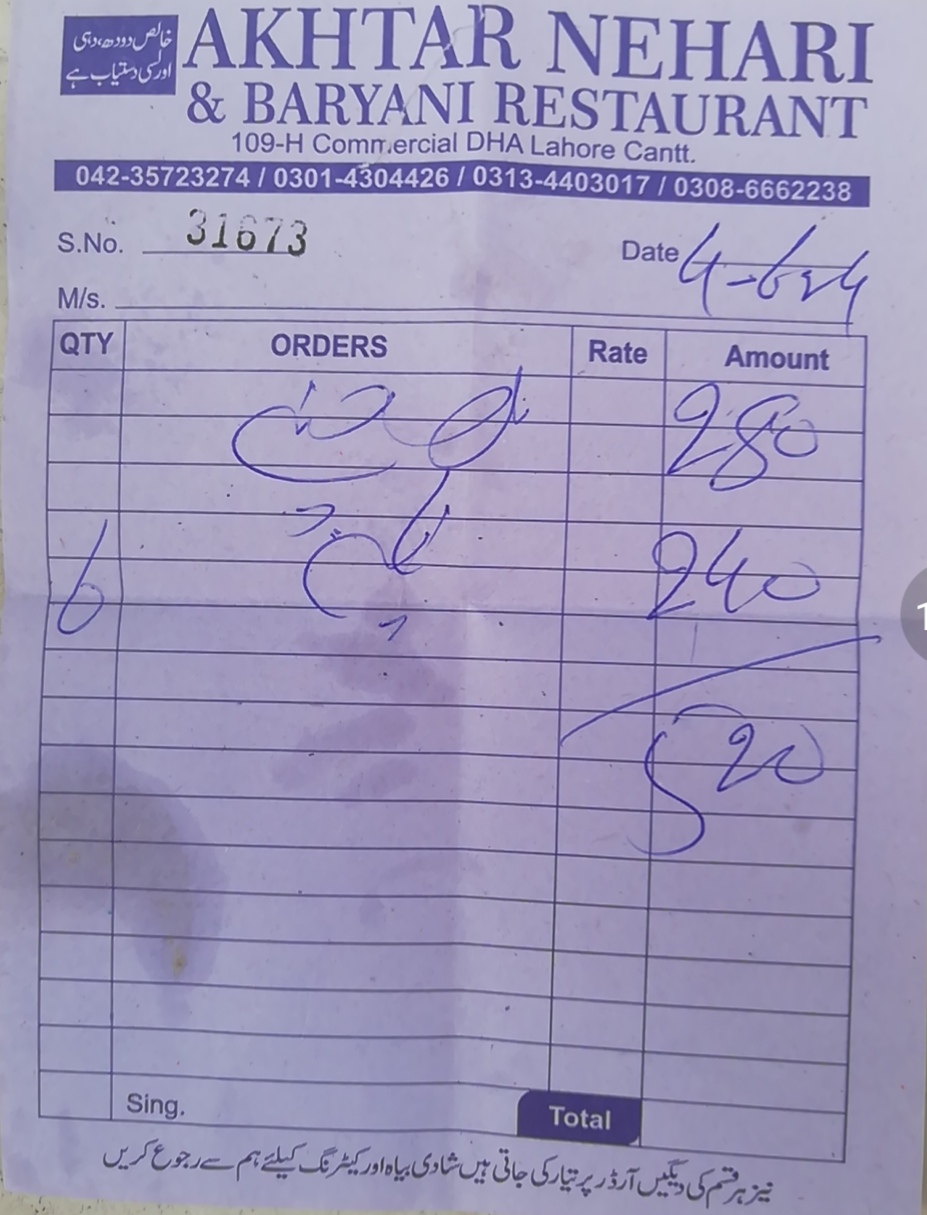 خالص دودھ، دہی
اور لسی دستیاب ہے
AKHTAR NEHARI
& BARYANI RESTAURANT
109-H Commercial DHA Lahore Cantt.
042-35723274 / 0301-4304426 / 0313-4403017 / 0308-6662238
S.No. 31673 Date 4-6-24
M/s.
QTY ORDERS Rate Amount
280
6 240
520
Sing. Total
نیز ہر قسم کی دیگیں آرڈر پر تیار کی جاتی ہیں شادی بیاہ اور کیٹرنگ کیلئے ہم سے رجوع کریں